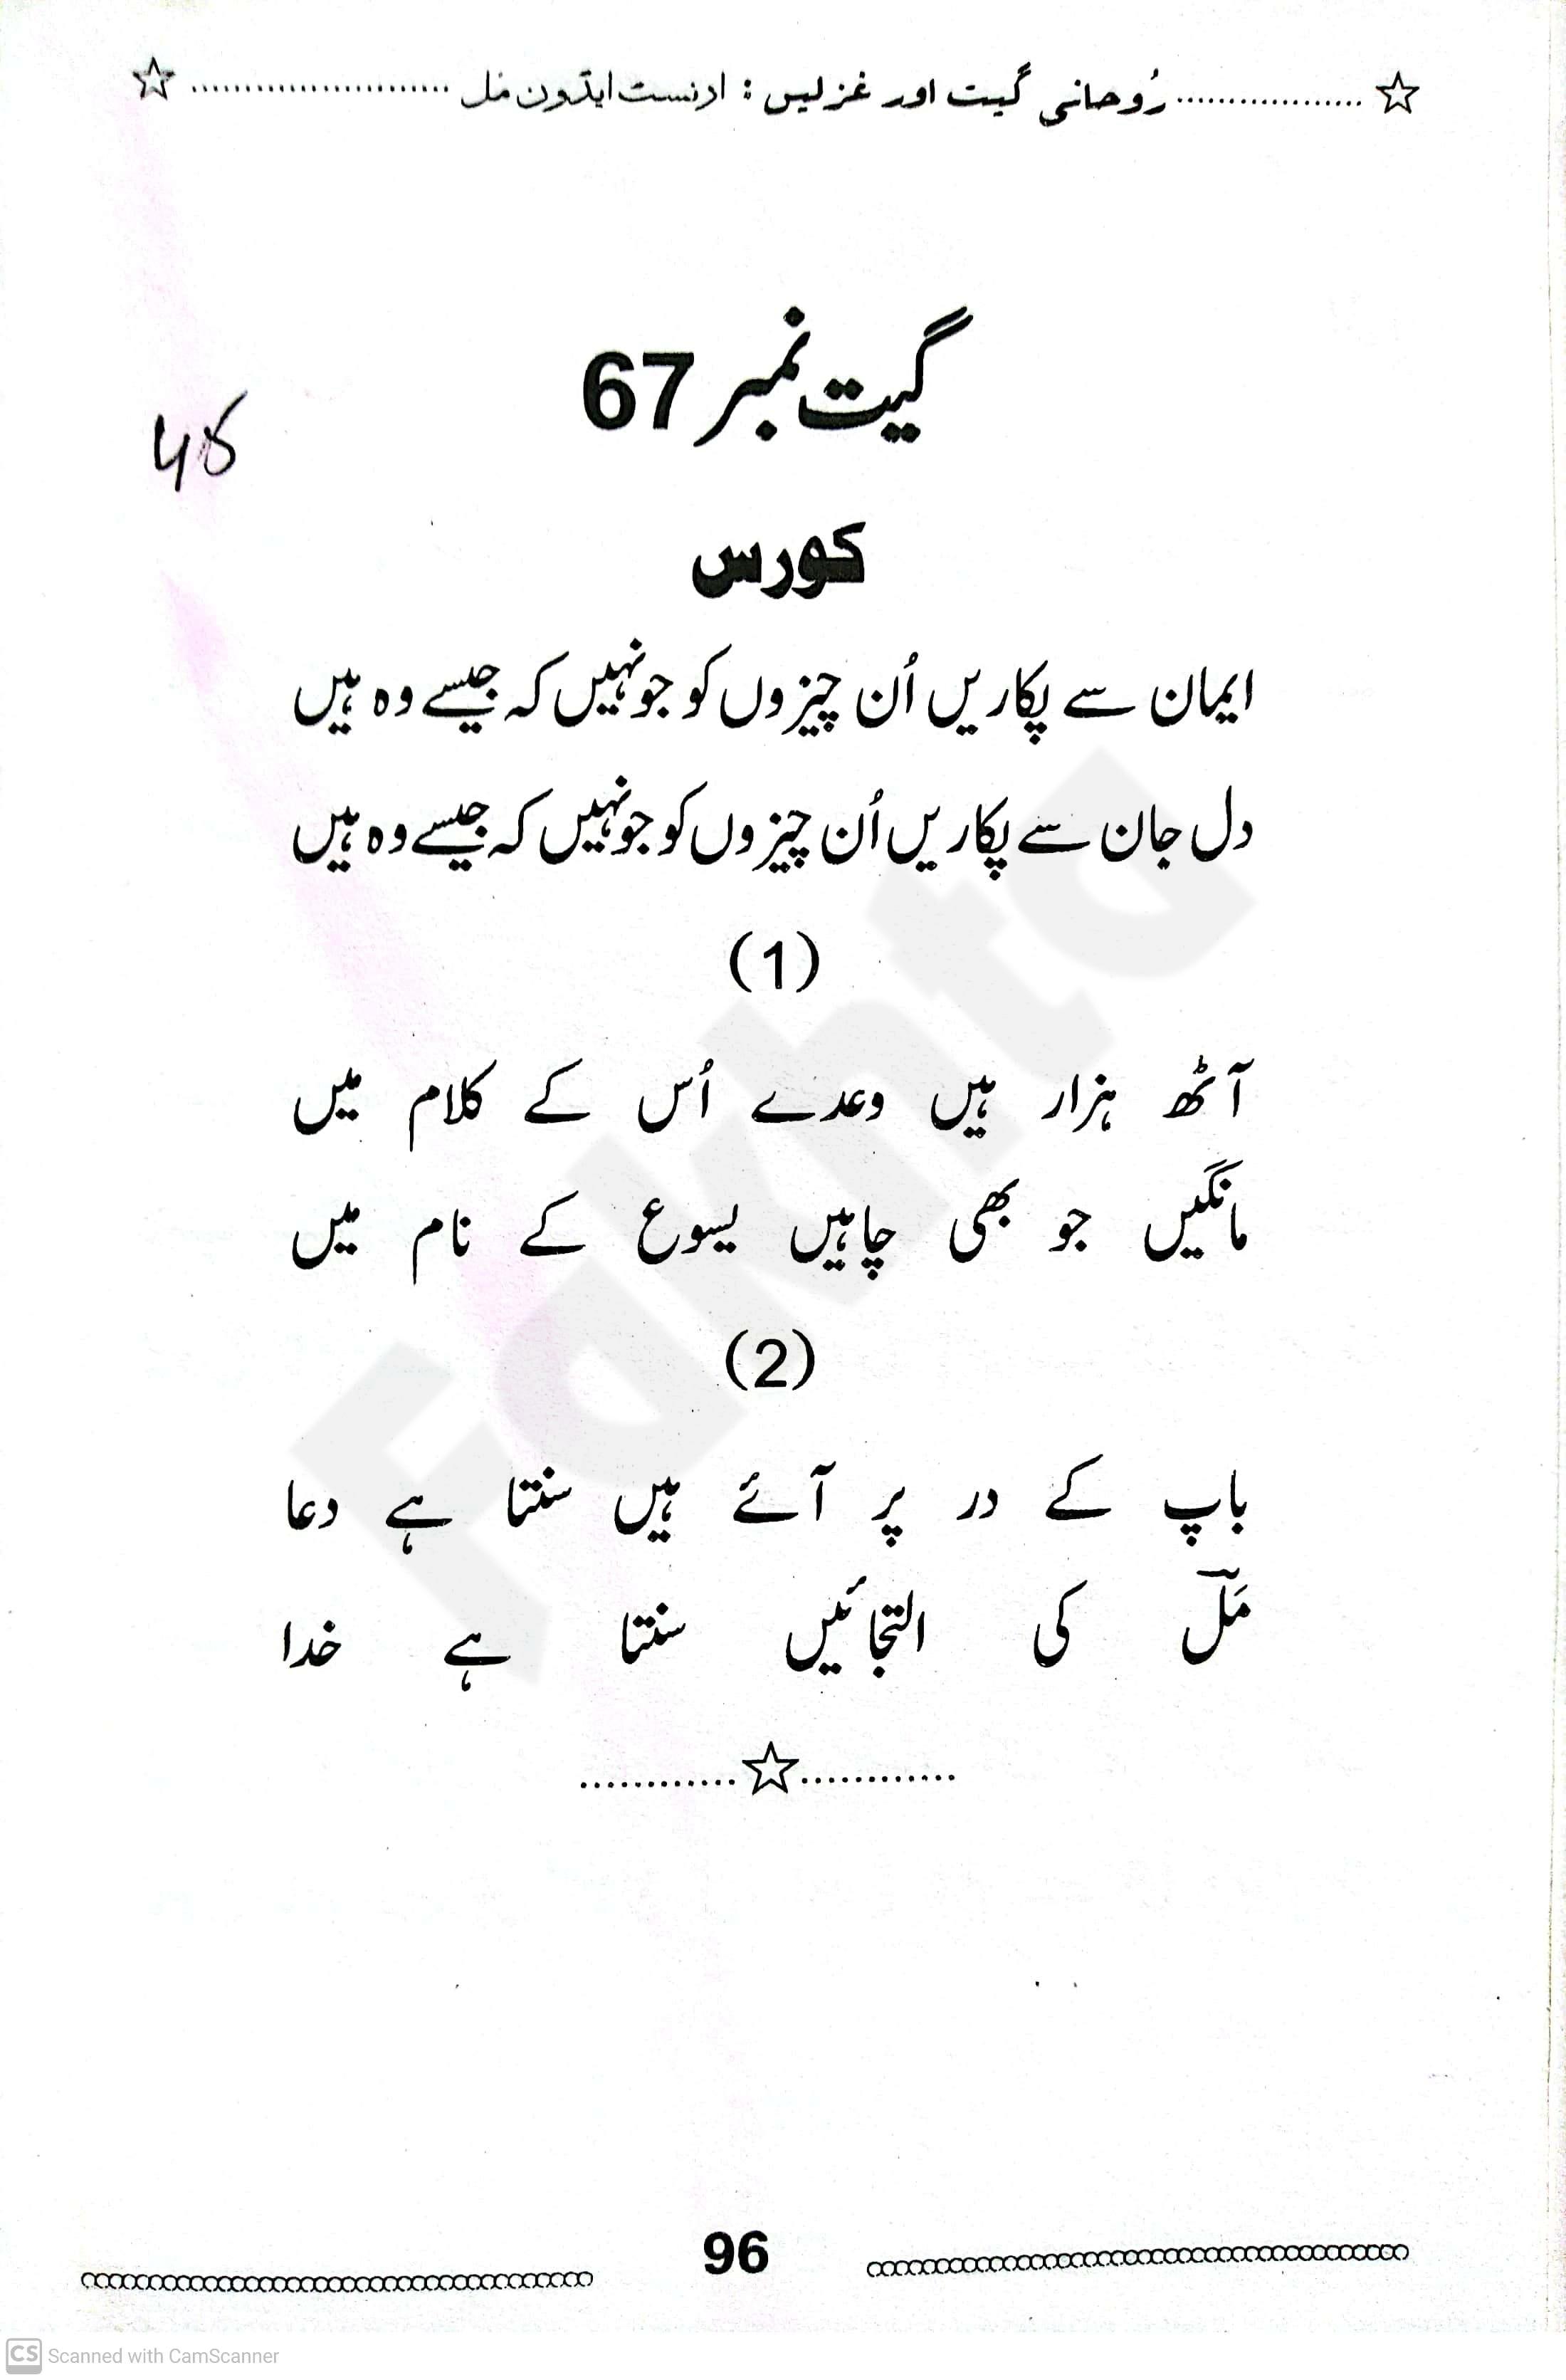 ☆..................رُوحانی گیت اور غزلیں : ارنسٹ ایڈون مَل........................☆
گیت نمبر 67
48
کورس
ایمان سے پکاریں اُن چیزوں کو جو نہیں کہ جیسے وہ ہیں
دل جان سے پکاریں اُن چیزوں کو جو نہیں کہ جیسے وہ ہیں
(1)
آٹھ ہزار ہیں وعدے اُس کے کلام میں
مانگیں جو بھی چاہیں یسوع کے نام میں
(2)
باپ کے در پر آئے ہیں سنتا ہے دعا
مَلؔ کی التجائیں سنتا ہے خدا
............☆............
96
CS Scanned with CamScanner
Fakhta